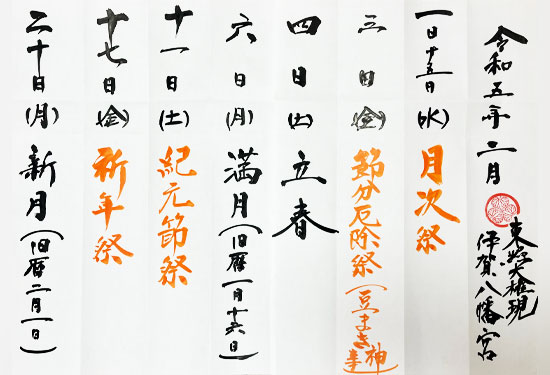 令和五年二月
東照大権現
伊賀八幡宮
一日十五日(水)月次祭
三日(金)節分厄除祭(豆まき神事)
四日(土)立春
六日(月)満月(旧暦一月十六日)
十一日(土)紀元節祭
十七日(金)祈年祭
二十日(月)新月(旧暦二月一日)